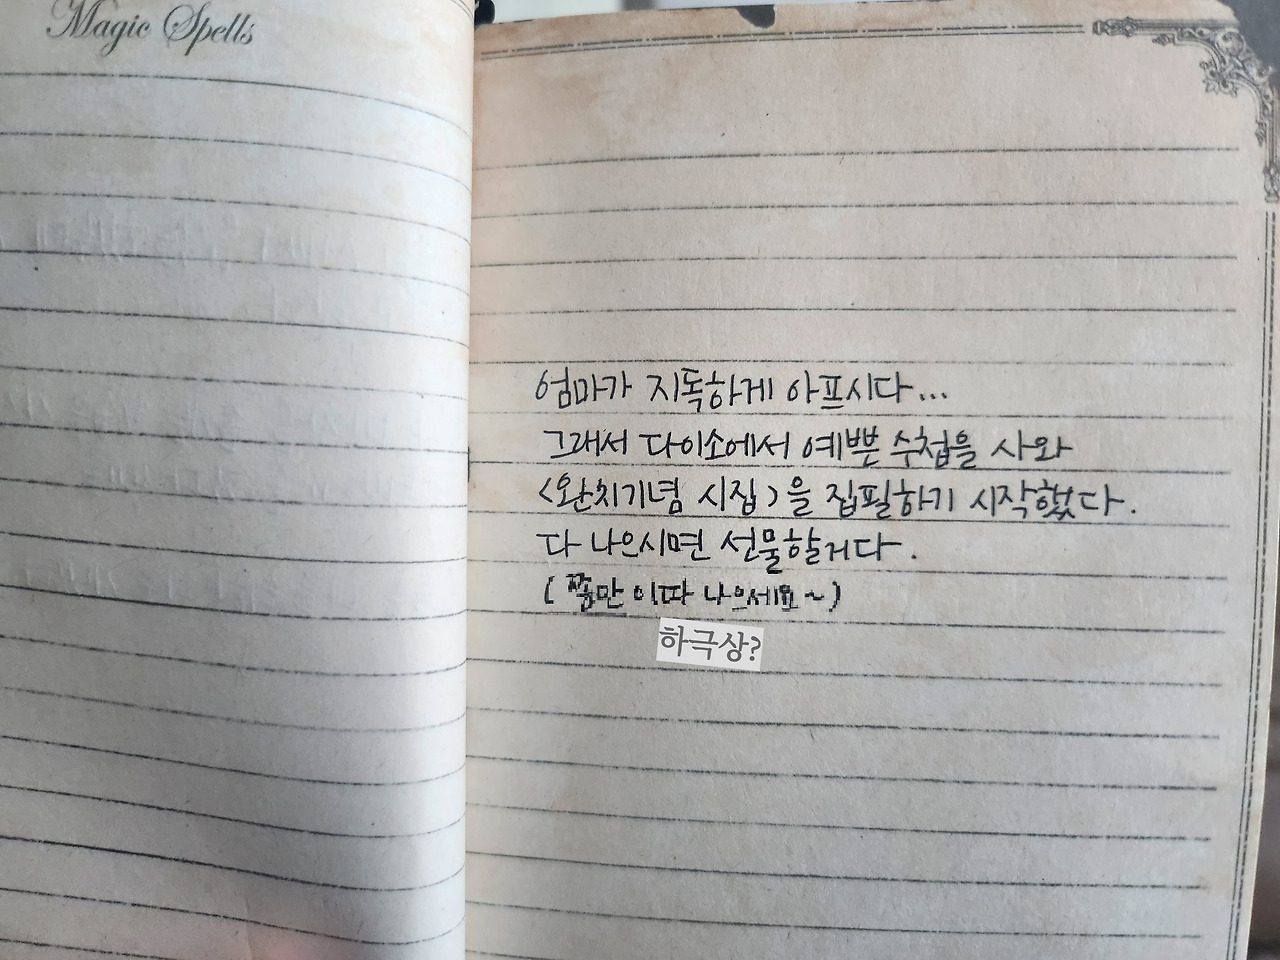 Magic Spells
엄마가 지독하게 아프시다...
그래서 다이소에서 예쁜 수첩을 사와
<완치기념 시집>을 집필하기 시작했다.
다 나으시면 선물할거다.
(쫌만 이따 나으세요~)
하극상?